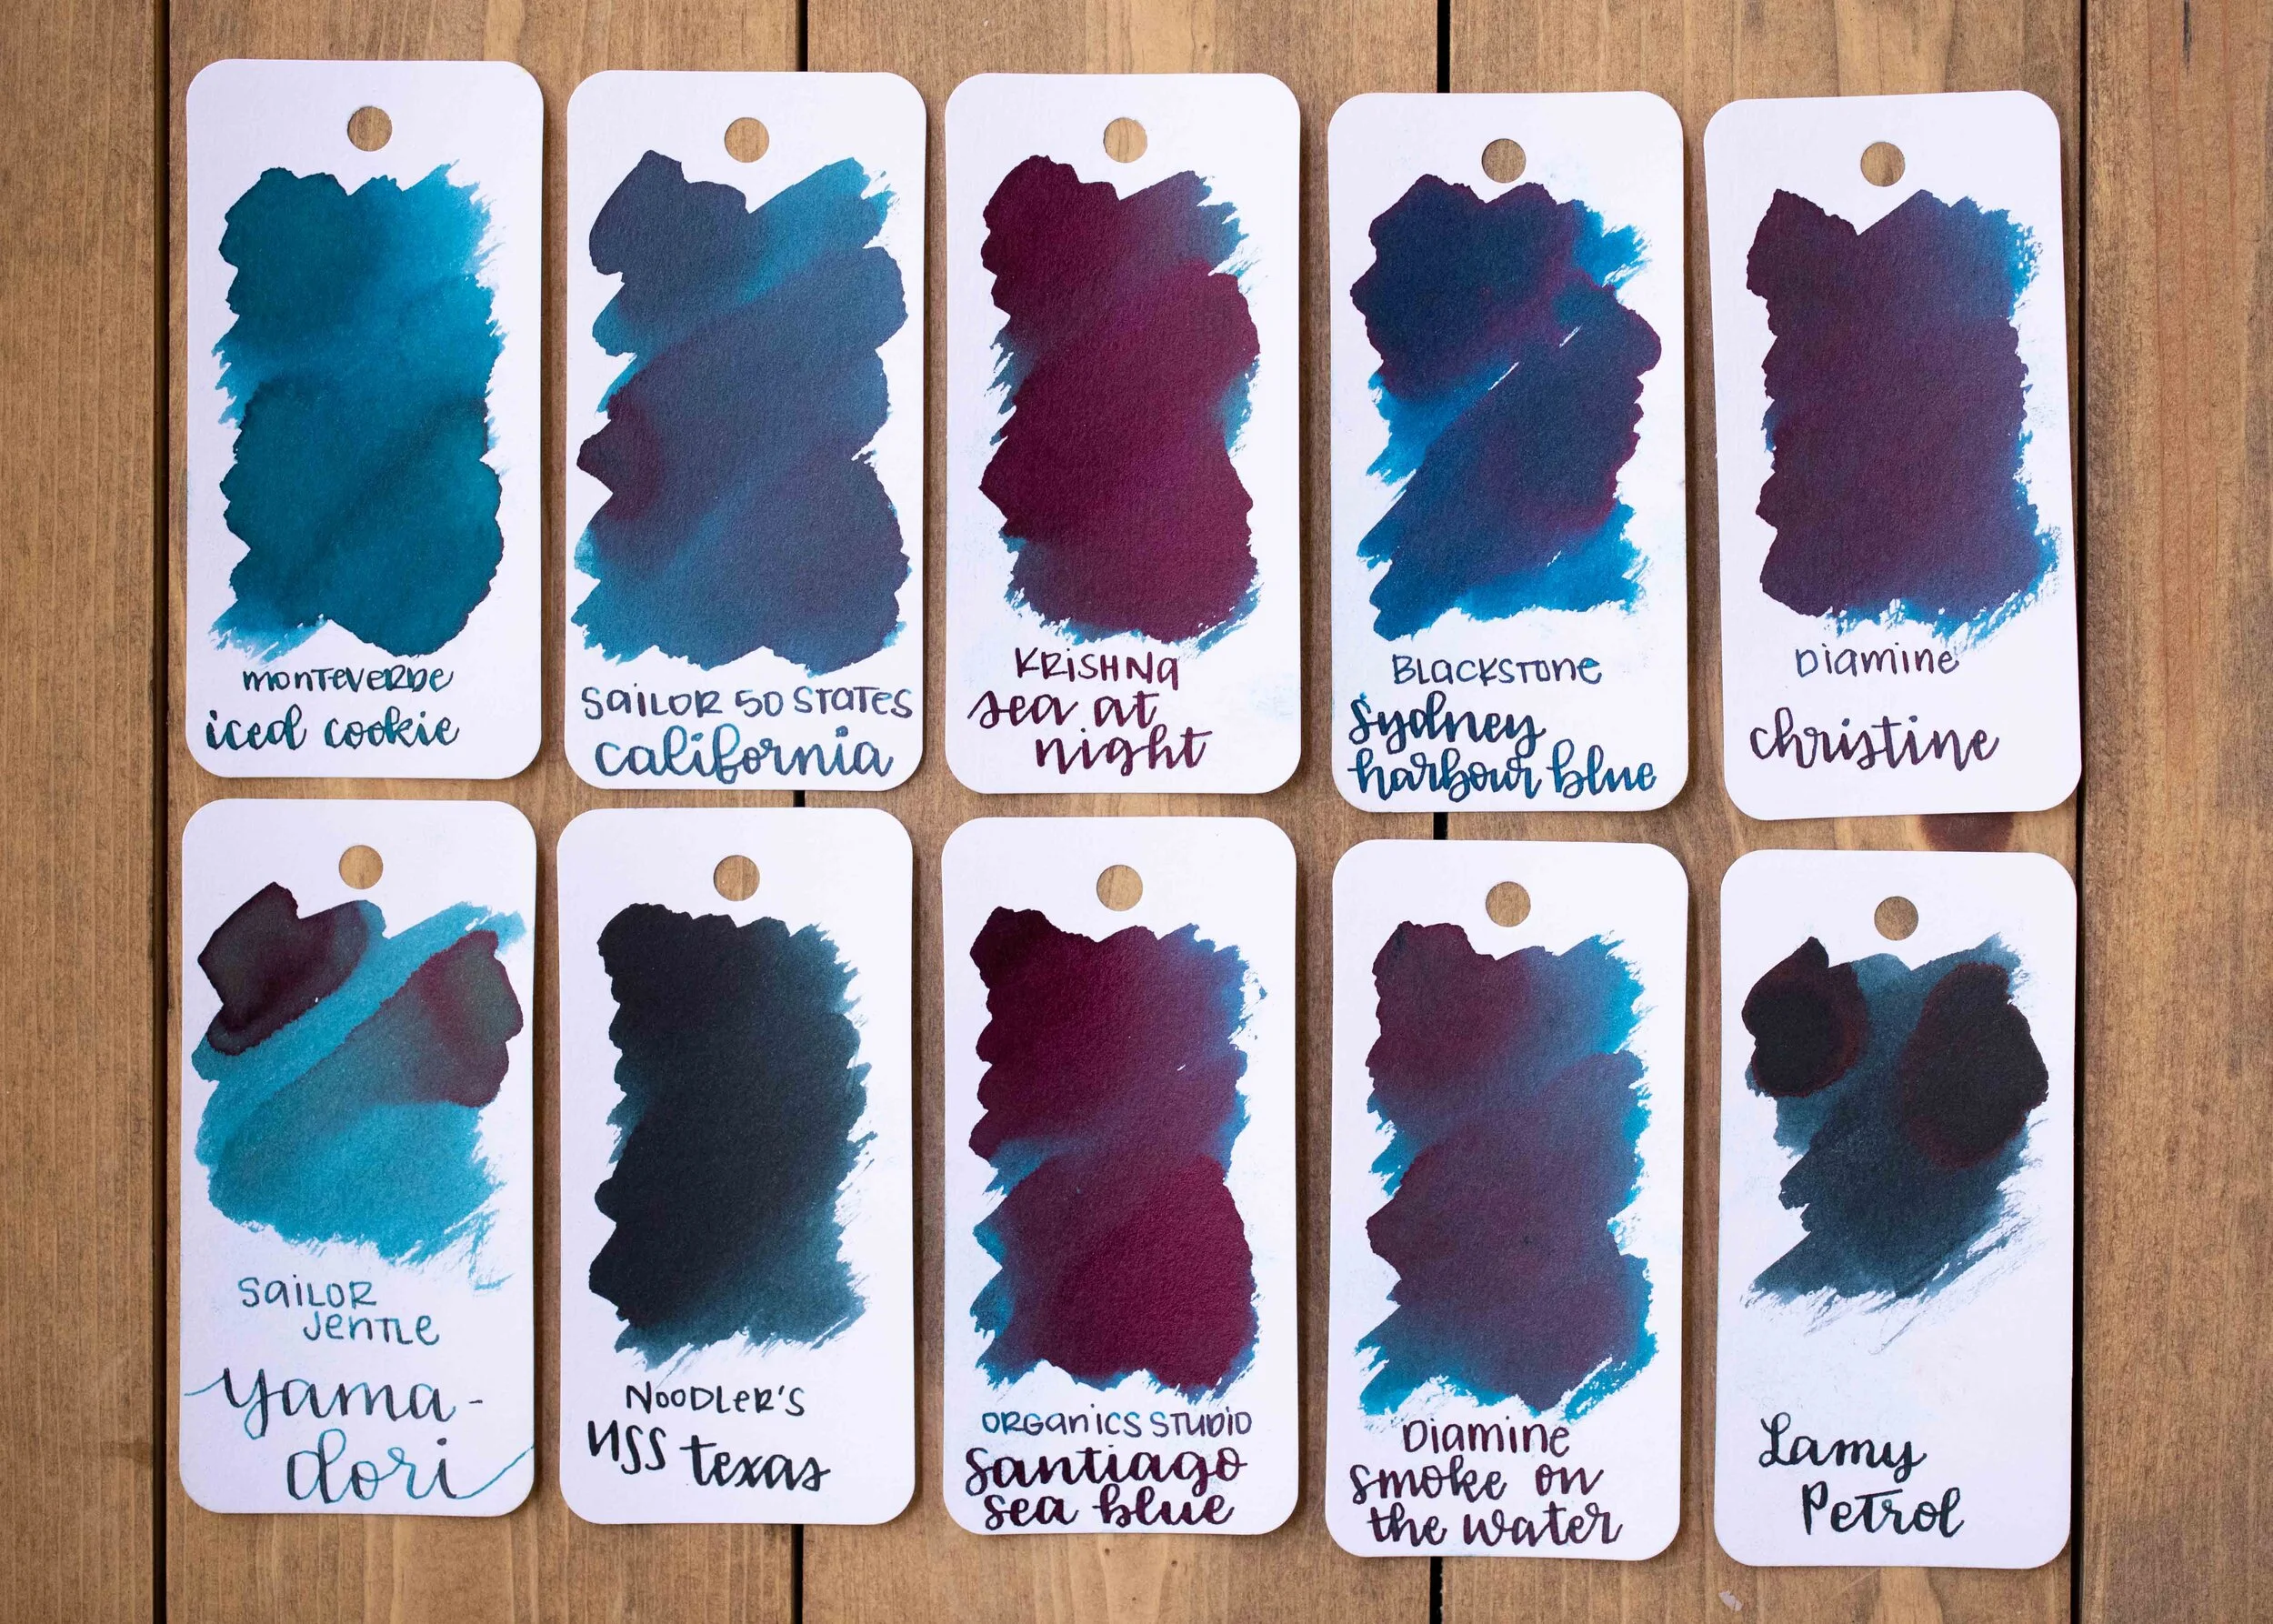 monteverde
iced cookie
Sailor 50 States
california
Krishna
sea at
night
Blackstone
Sydney
harbour blue
Diamine
christine
Sailor
Jentle
yama-
dori
Noodler's
USS texas
Organics Studio
Santiago
sea blue
Diamine
smoke on
the water
Lamy
Petrol